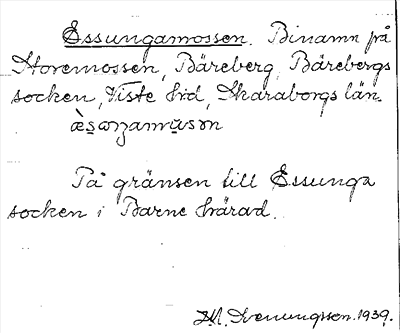 Essungamossen. Binamn på
Storemossen, Bäreberg, Bärebergs
socken, Viste hrd, Skaraborgs län.
På gränsen till Essunga
socken i Barne härad.
Svenungsson. 1939.